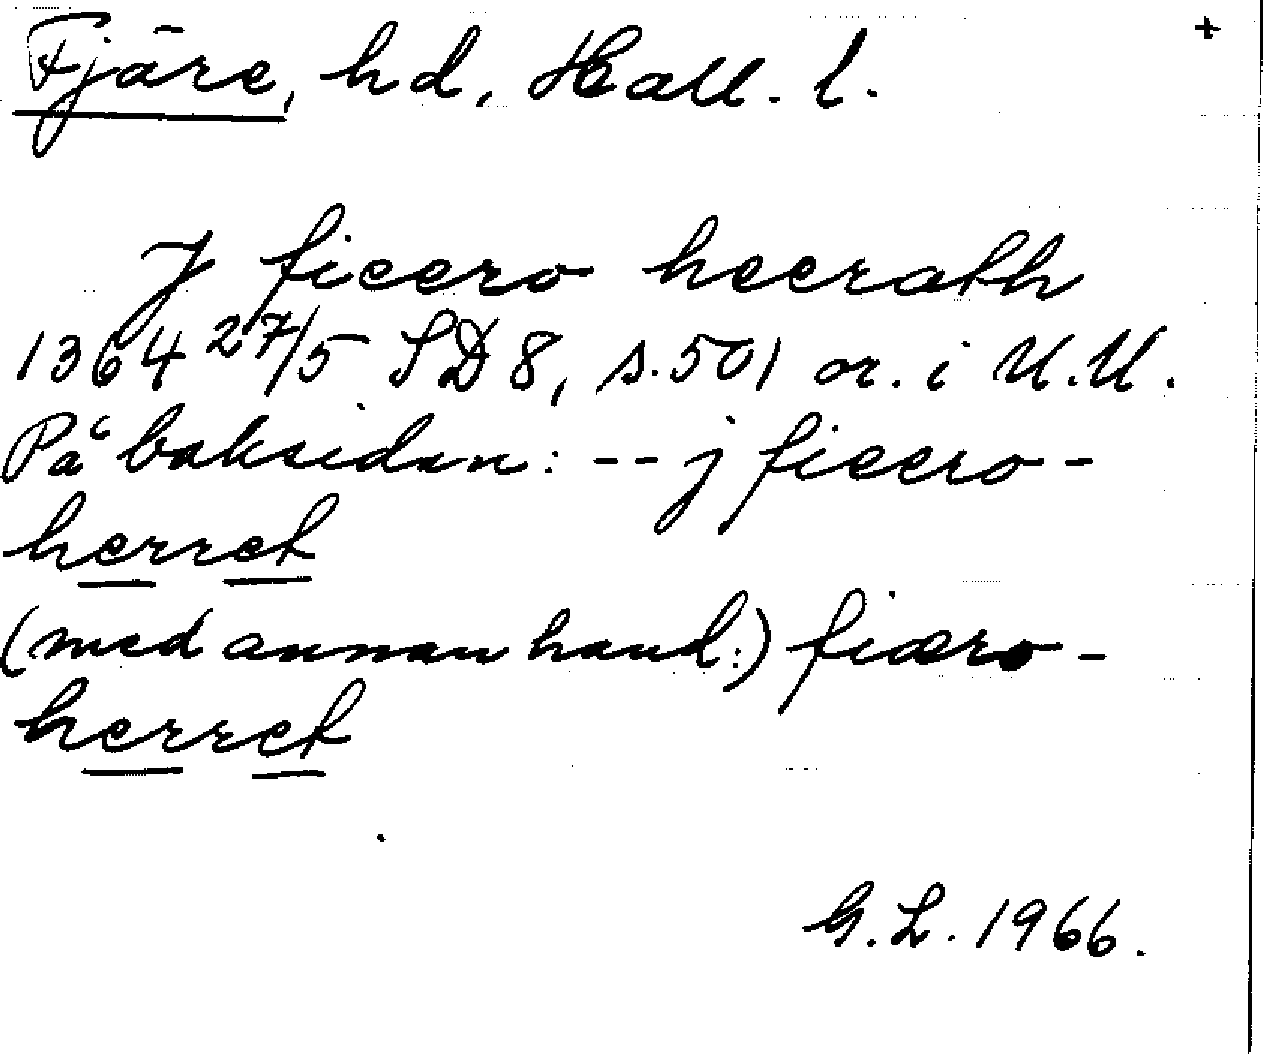 +
Fjäre, hd, Hall. l.
J ficero heerath
1364 27/5 SD 8, s. 501 or. i U.U.
På baksidan: -- j ficero-
herret
(med annan hand:) fiæro-
herret
G.L. 1966.